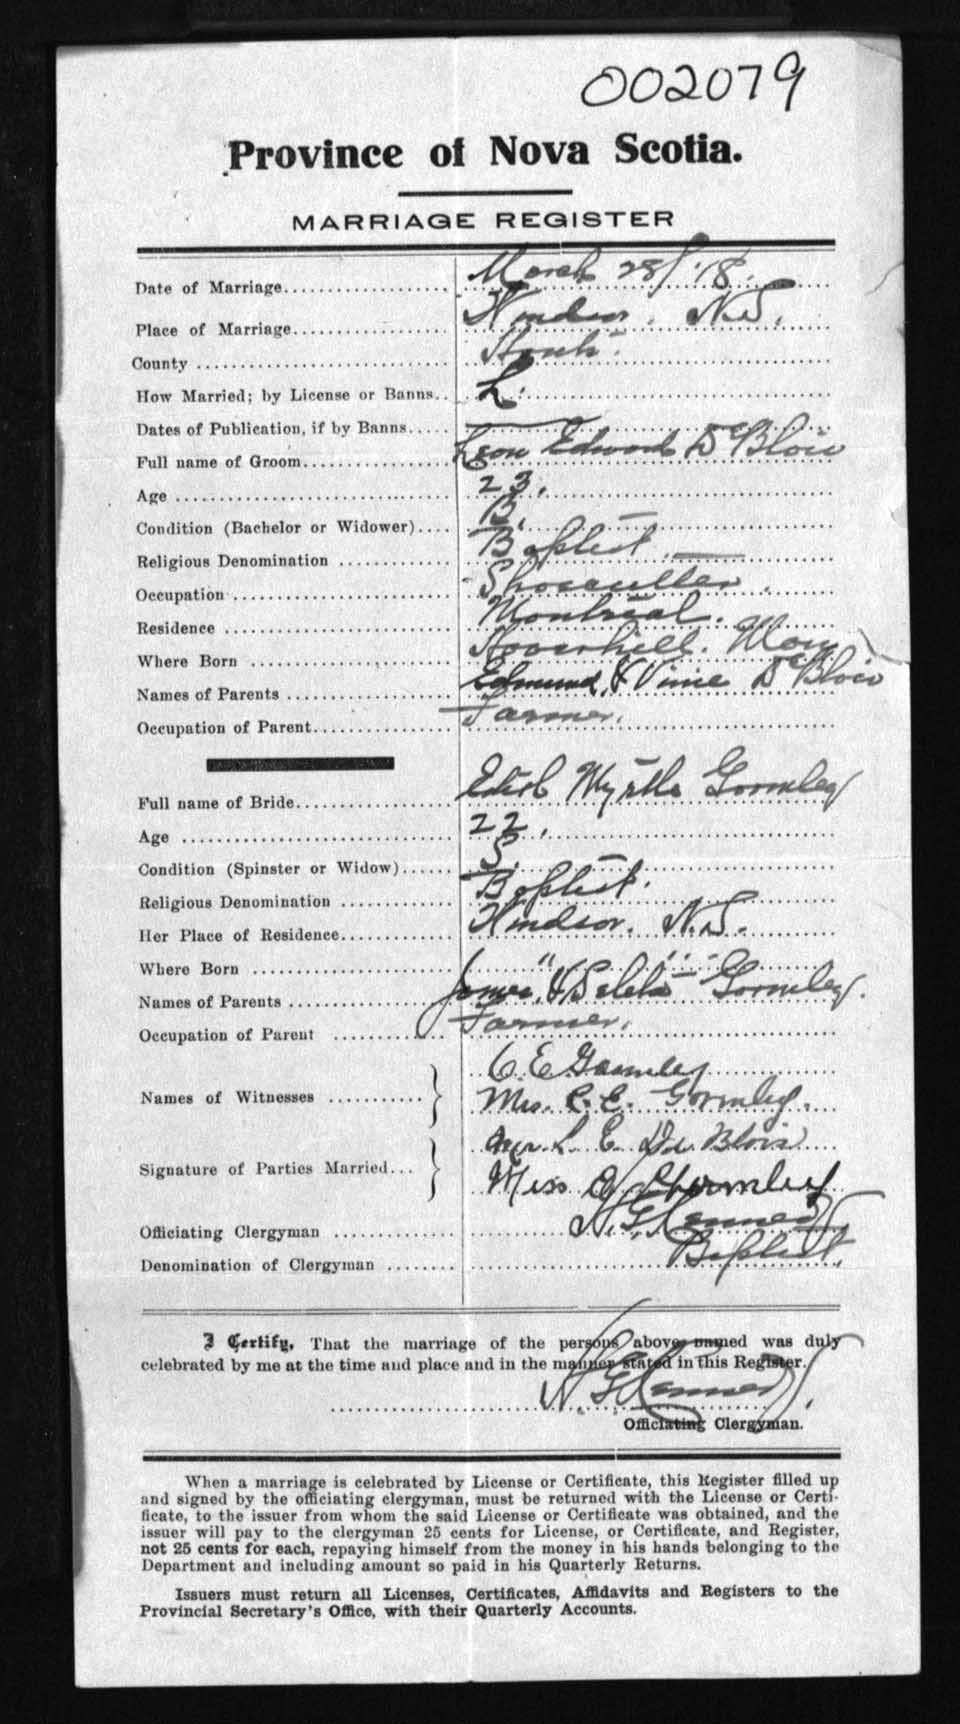 002079
Province of Nova Scotia.
MARRIAGE REGISTER
Date of Marriage March 28/'18.
Place of Marriage Windsor. N.S.
County Hants.
How Married; by License or Banns L.
Dates of Publication, if by Banns
Full name of Groom Leon Edward DeBlois
Age 23.
Condition (Bachelor or Widower) B.
Religious Denomination Baptist.
Occupation Shoecutter.
Residence Montreal.
Where Born Haverhill. Mass
Names of Parents Edmund & Vinie DeBlois
Occupation of Parent Farmer.
Full name of Bride Edith Myrtle Gormley
Age 22.
Condition (Spinster or Widow) S.
Religious Denomination Baptist.
Her Place of Residence Windsor. N.S.
Where Born " "
Names of Parents James & Gormley.
Occupation of Parent Farmer.
Names of Witnesses C. E Gormley
Mrs. C. E. Gormley.
Signature of Parties Married Mr L E De Blois
Miss Gormley
Officiating Clergyman
Denomination of Clergyman Baptist.
I Certify, That the marriage of the persons above named was duly
celebrated by me at the time and place and in the manner stated in this Register.
Officiating Clergyman.
When a marriage is celebrated by License or Certificate, this Register filled up
and signed by the officiating clergyman, must be returned with the License or Certi-
ficate, to the issuer from whom the said License or Certificate was obtained, and the
issuer will pay to the clergyman 25 cents for License, or Certificate, and Register,
not 25 cents for each, repaying himself from the money in his hands belonging to the
Department and including amount so paid in his Quarterly Returns.
Issuers must return all Licenses, Certificates, Affidavits and Registers to the
Provincial Secretary's Office, with their Quarterly Accounts.